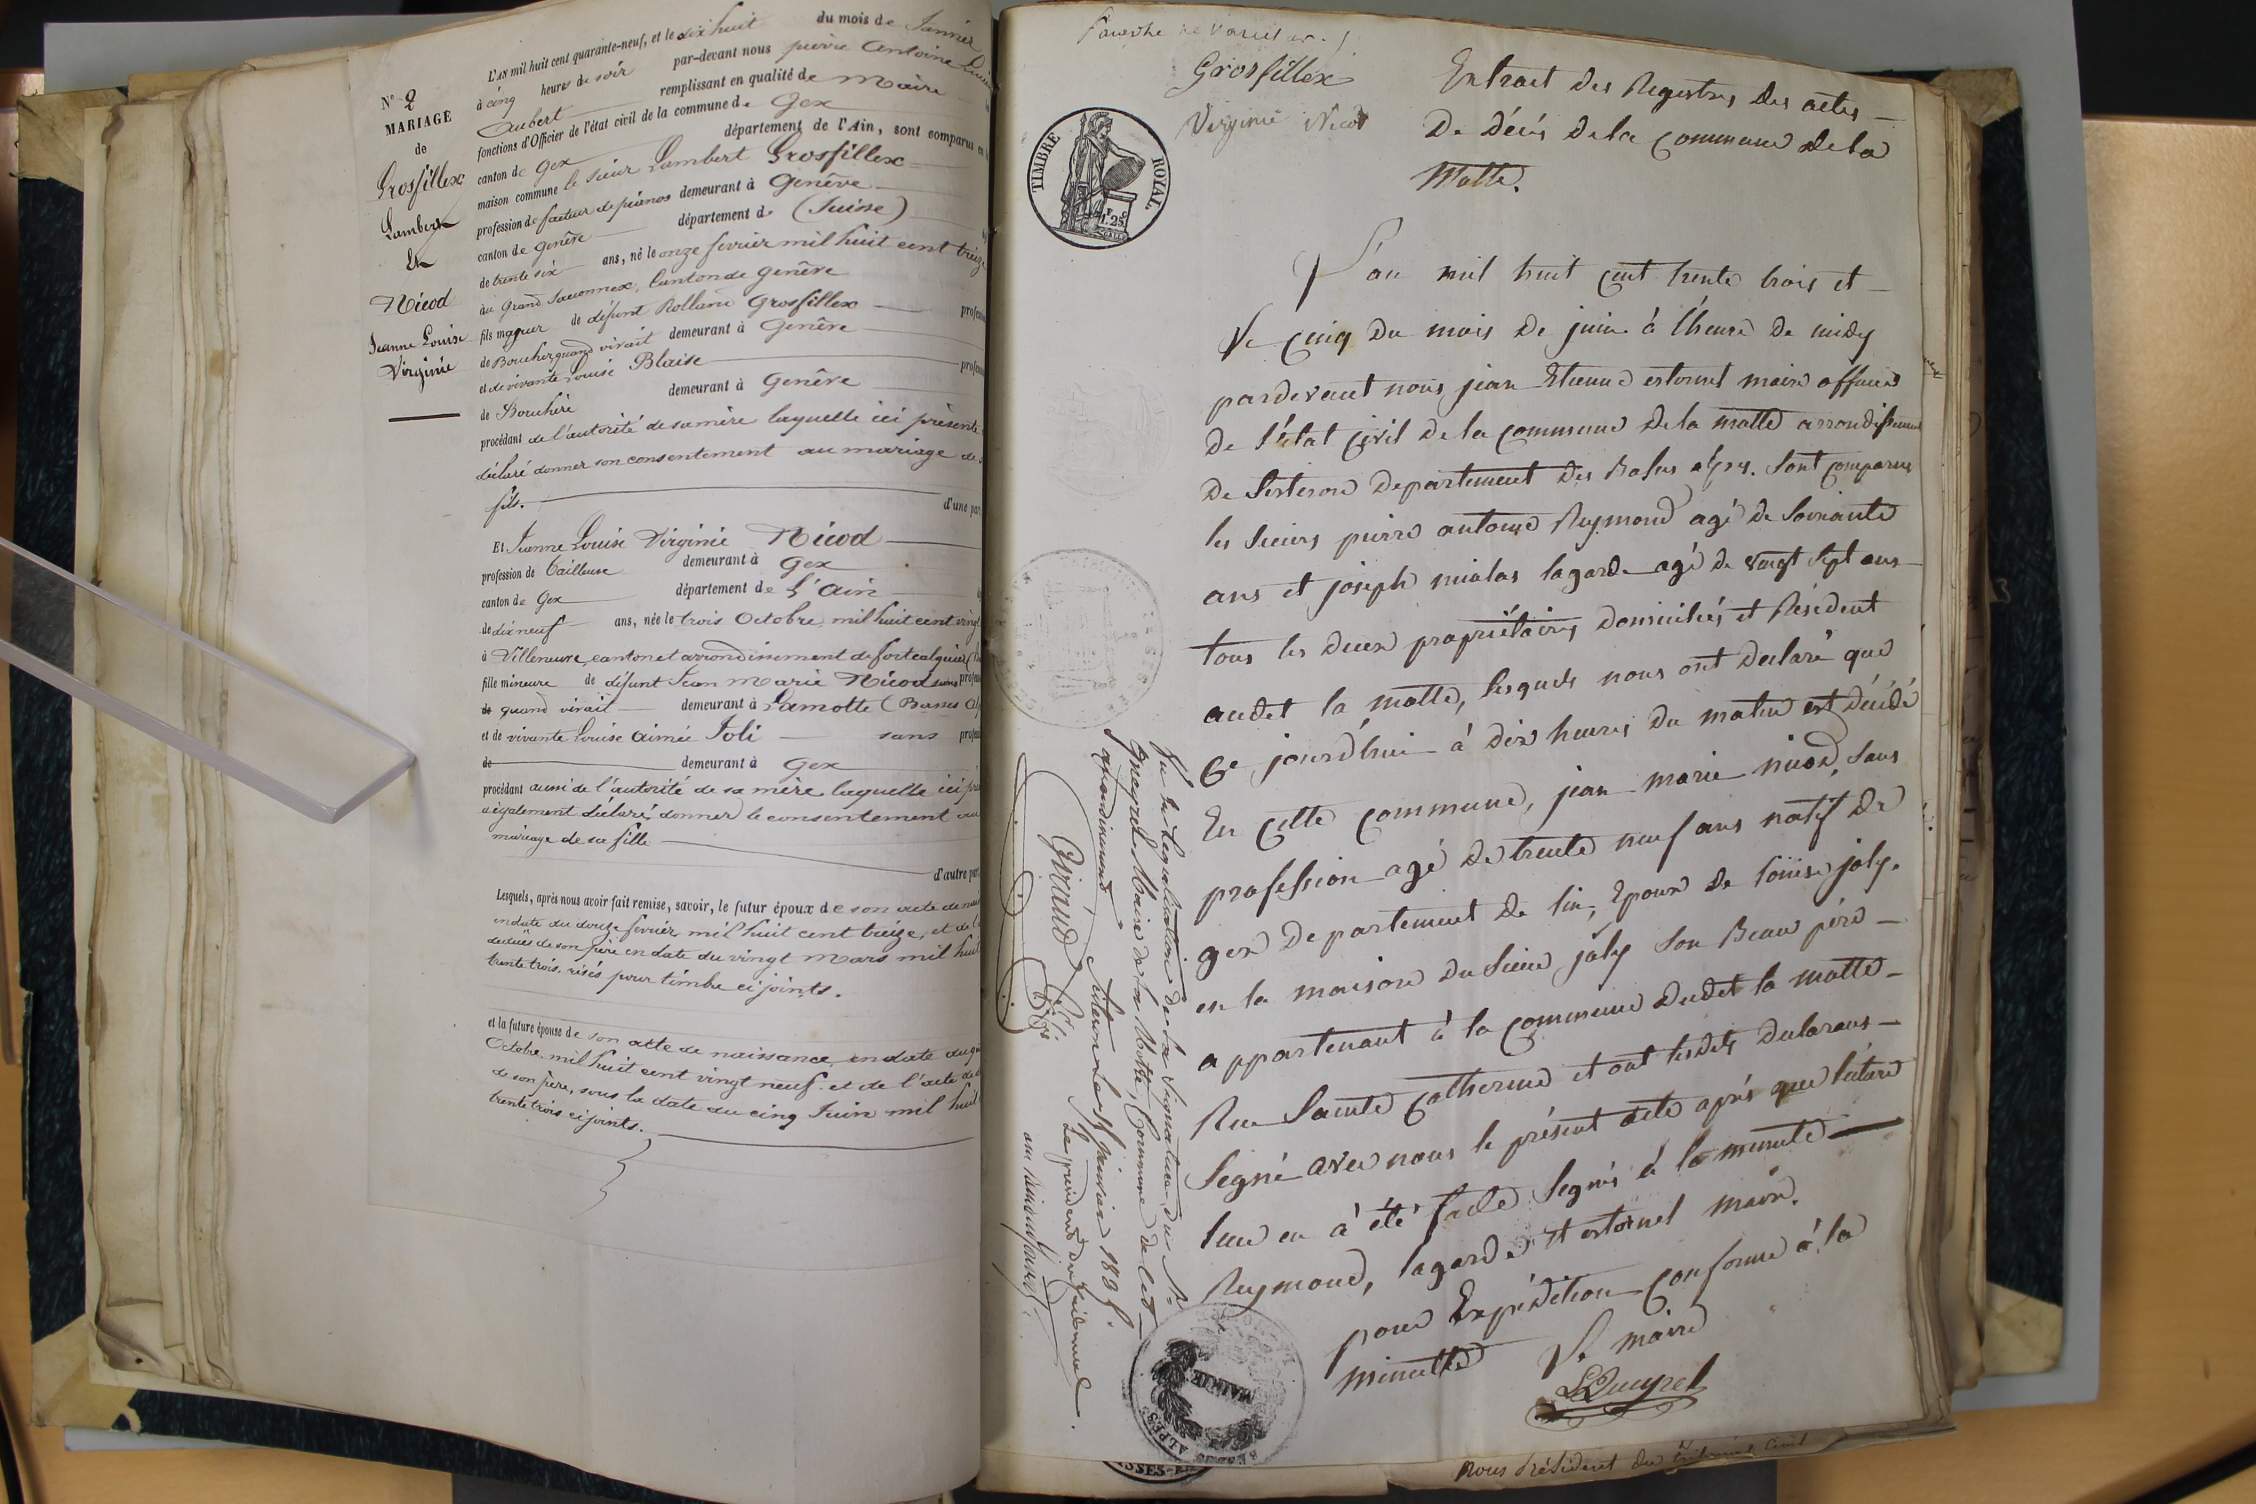 N° 2
MARIAGE
de
Grosfillex
Lambert
Et
Nicod
Jeanne Louise
Virginie
L'AN mil huit cent quarante-neuf, et le dix huit du mois de Janvier
à cinq heures de soir par-devant nous pierre Antoine
Aubert remplissant en qualité de Maire
fonctions d'Officier de l'état civil de la commune de Gex
canton de Gex département de l'Ain, sont comparus en
maison commune le sieur Lambert Grosfillex
profession de facteur de piano demeurant à Genêve
canton de Genêve département de (Suisse)
de trente six ans, né le onze fevrier mil huit cent treize
au Grand Saconnex, Canton de Genêve
fils majeur de défunt Rolland Grosfillex
de Boucher quand vivait demeurant à Genêve
et de vivante Louise Blaise
de Bouchère demeurant à Genêve
procédant de l'autorité de sa mère laquelle ici présente
déclaré donner son consentement au mariage de
fils. d'une par
Et Jeanne Louise Virginie Nicod
profession de tailleuse demeurant à Gex
canton de Gex département de L'Ain
de dixneuf ans, née le trois Octobre mil huit cent vingt
à Villeneuve, canton et arrondissement de fortcalquier
fille mineure de défunt Jean Marie Nicod sans
de quand vivait demeurant à Lamotte (Basses
et de vivante Louise Aimée Joli sans
de demeurant à Gex
procédant aussi de l'autorité de sa mère laquelle ici
a également déclaré donner le consentement au
mariage de sa fille
d'autre par
Lesquels, après nous avoir fait remise, savoir, le futur époux de son acte de
en date du douze fevrier mil huit cent treize, et de
décès de son père en date du vingt Mars mil huit
trente trois, visés pour timbre ci joints.
et la future épouse de son acte de naissance en date du
Octobre mil huit cent vingt neuf et de l'acte de
de son père, sous la date du cinq Juin mil huit
trente trois ci joints.
Grosfillex
Virginie Nicod
TIMBRE ROYAL
1. 25
Extrait des Registres des actes
De décés de la Commune de la
Motte.
L'an mil huit cent trente trois et
le cinq du mois de juin à l'heure de midy
pardevant nous jean Etienne estornel maire officier
de l'état civil de la commune de la motte arrondissement
de Sisteron departement des Basses alpes. sont comparus
les sieurs pierre antoine Reymond agé de soixante
ans et joseph nicolas lagarde agé de vingt sept ans
tous les deux propriétaires domiciliés et Résident
audet la motte, lesquels nous ont declaré que
Ce jourd'hui à dix heures du matin est décédé
En cette commune, jean marie nicod, sans
profession agé de trente neuf ans natif de
gex departement de lin, Epoux de louïse joly.
en la maison du sieur joly son Beau père
appartenant à la commune dudet la motte
Rue Sainte Catherine et ont lesdets declarans
Segné avec nous le présent acte après que lécture
leur en à été faite segnés à la minute
Reymond, lagarde et estornel maire.
pour Expédition conforme à la
minutte
Le maire
Vu la légalisation de la signature du Sr
Maire de la Motte, Commune de cet
arrondissement
Giraud
Le president du tribunal
MAIRIE
ALPES
nous Président du tribunal Civil